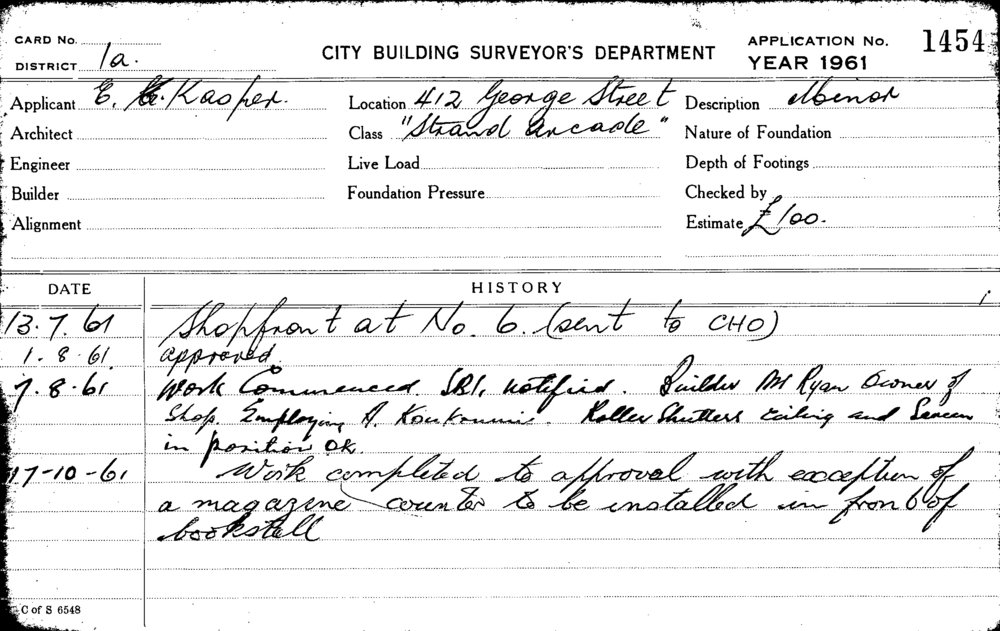 CARD No.
DISTRICT 1a.
CITY BUILDING SURVEYOR'S DEPARTMENT
APPLICATION No. 1454
YEAR 1961
Applicant E. G. Kasper. Location 412 George Street Description Minor
Architect Class "Strand Arcade" Nature of Foundation
Engineer Live Load Depth of Footings
Builder Foundation Pressure Checked by
Alignment Estimate £100.
DATE HISTORY
13.7.61 Shopfront at No. 6. (sent to CHO)
1.8.61 approved.
7.8.61 Work Commenced. notified. Builder Mr Ryan Owner of
Shop. Employing A. Roller Shutters Ceiling and Screen
in position OK.
17-10-61 Work completed to approval with exception of
a magazine counter to be installed in front of
bookstall
C of S 6548